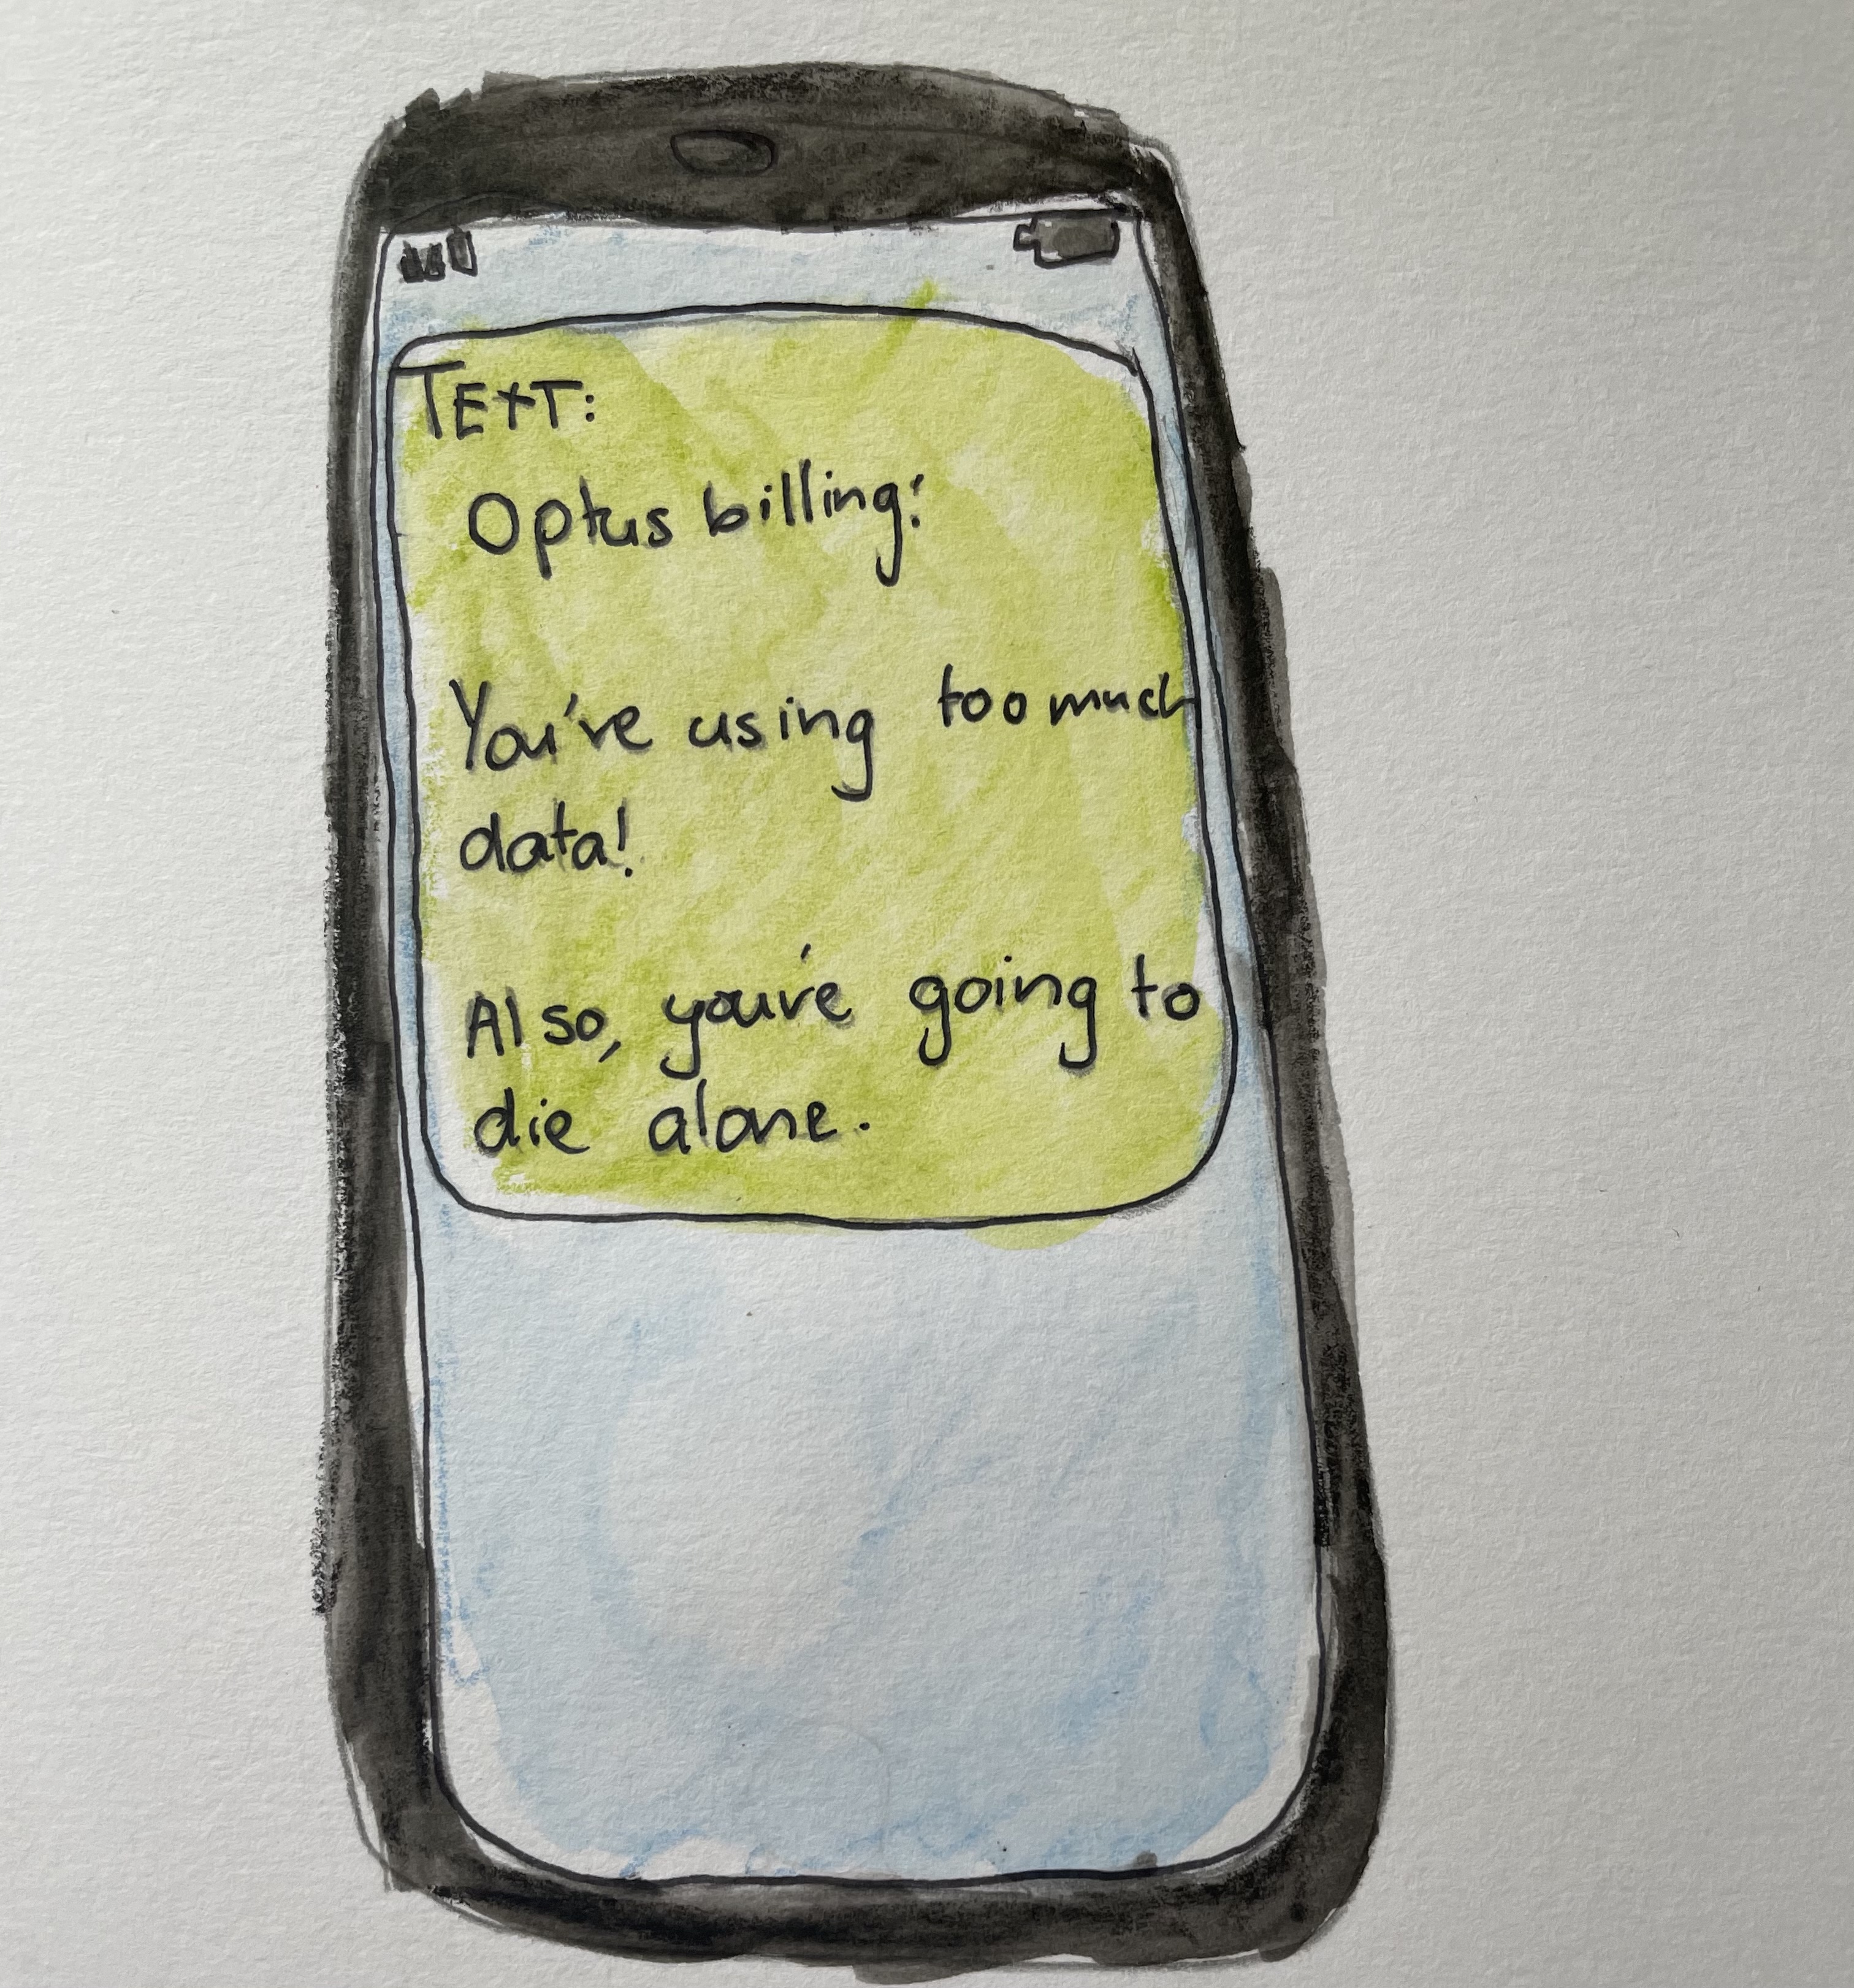 TEXT:
Optus billing:
You've using too much
data!
Also, you've going to
die alone.